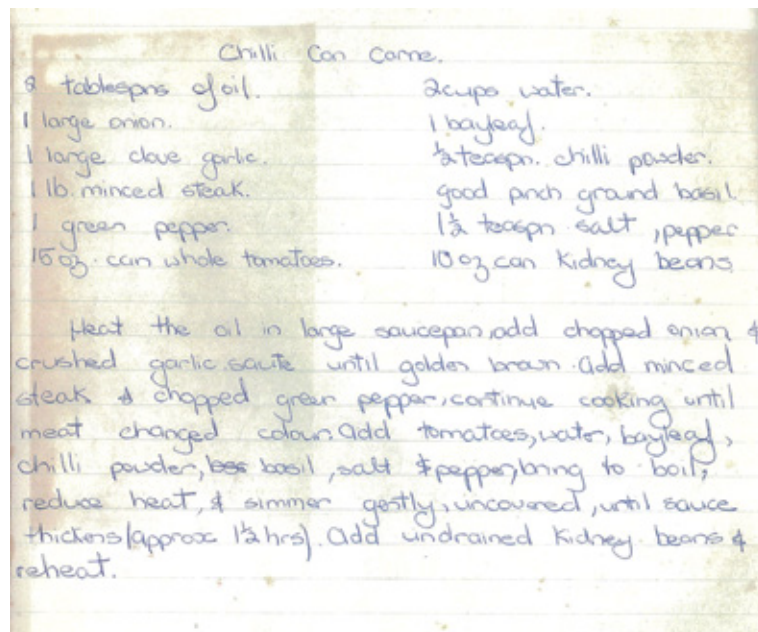 Chilli Con Carne.
2 tablespns of oil.
1 large onion.
1 large clove garlic.
1 lb. minced steak.
1 green pepper.
15 oz. can whole tomatoes.
2 cups water.
1 bayleaf.
½ teaspn. chilli powder.
good pinch ground basil.
1½ teaspn salt, pepper
10 oz can kidney beans
Heat the oil in large saucepan, add chopped onion &
crushed garlic. saute until golden brown. Add minced
steak & chopped green pepper, continue cooking until
meat changed colour. Add tomatoes, water, bayleaf,
chilli powder, basil, salt & pepper, bring to boil,
reduce heat, & simmer gently, uncovered, until sauce
thickens (approx 1½ hrs). Add undrained kidney beans &
reheat.